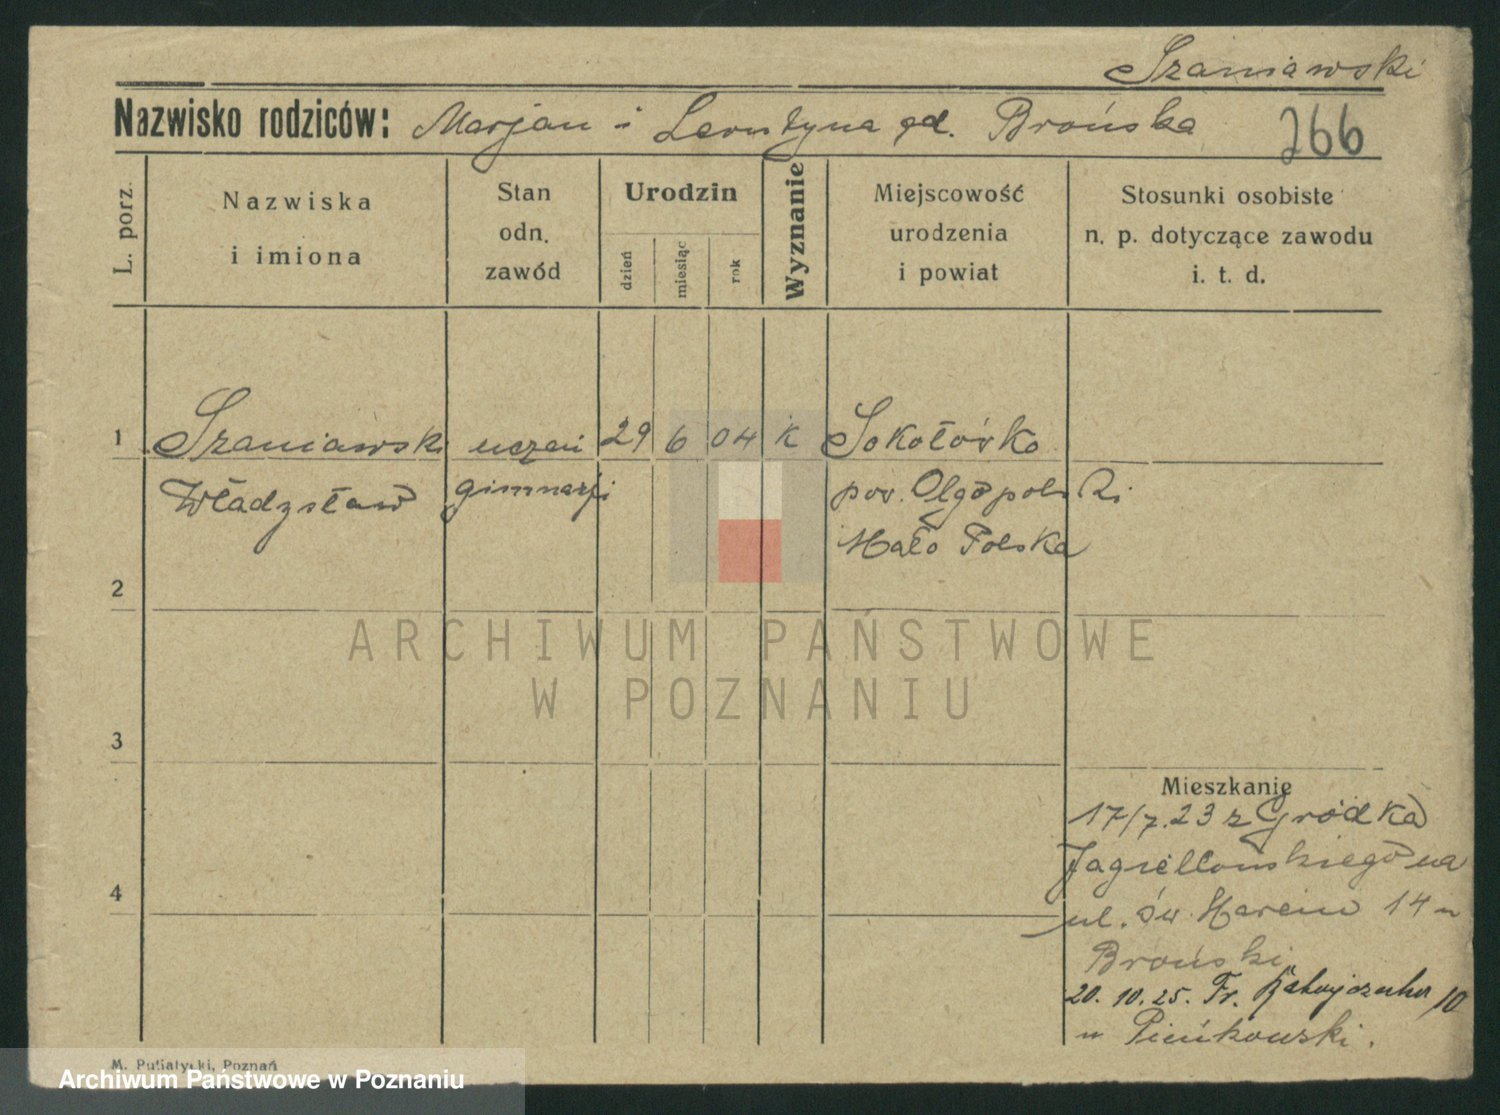 Szaniawski
Nazwisko rodziców: Marjan i Leontyna gd. Brońska 266
L. porz.
Nazwiska
i imiona
Stan
odn.
zawód
Urodzin
dzień
miesiąc
rok
Wyznanie
Miejscowość
urodzenia
i powiat
Stosunki osobiste
n. p. dotyczące zawodu
i. t. d.
1 Szaniawski uczeń 29 6 04 K Sokołówko
Władysław gimnazji pow. Olgopolski
Mało Polska
2
ARCHIWUM PAŃSTWOWE
W POZNANIU
3
Mieszkanie
17/7.23 z Gródka
Jagiellońskiego na
4
ul. św. Marcin 14 u
Broński
20. 10. 25. Fr. Ratajczaka 10
u Pieńkowski.
M. Putiatycki, Poznań
Archiwum Państwowe w Poznaniu